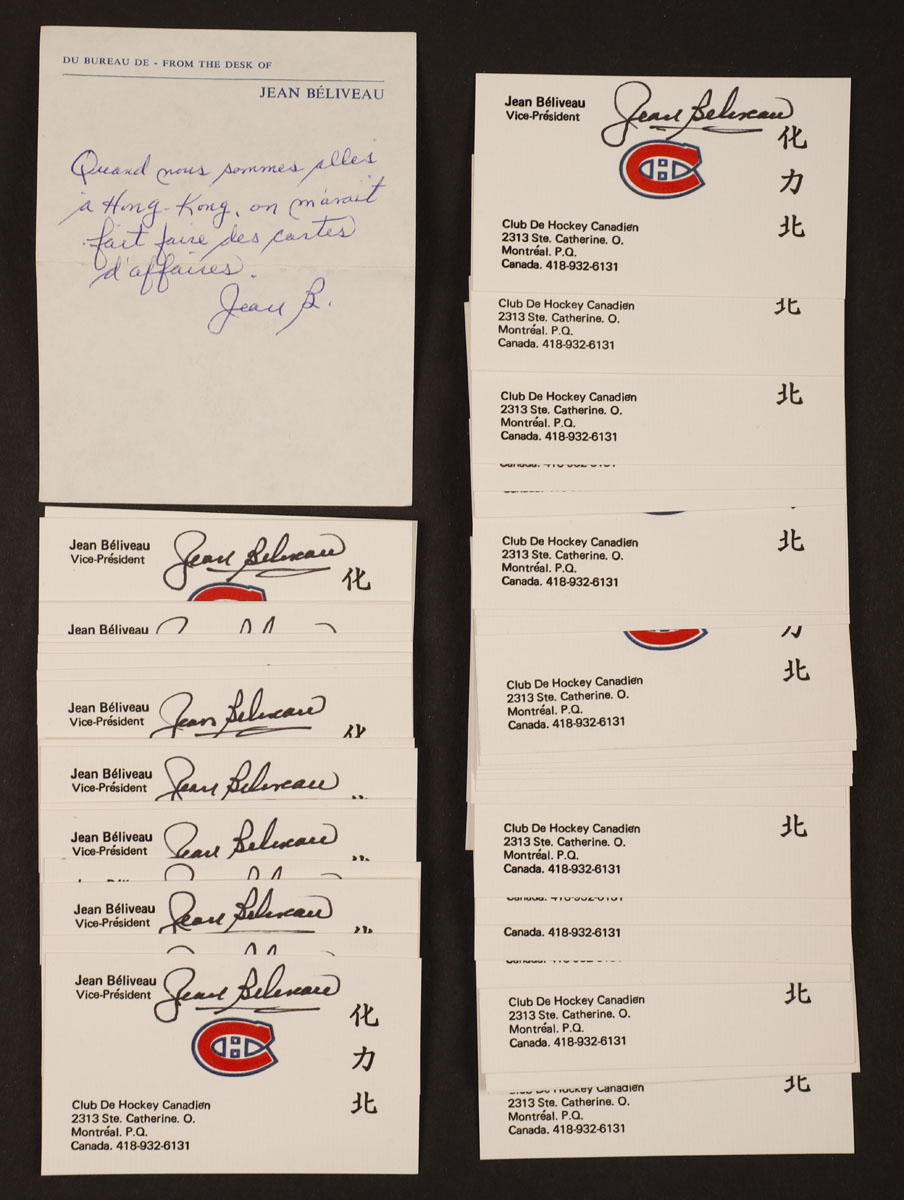 DU BUREAU DE - FROM THE DESK OF
JEAN BÉLIVEAU
Quand nous sommes allés
à Hong-Kong, on m'avait
fait faire des cartes
d'affaires.
Jean B.
Jean Béliveau
Vice-Président
Jean Beliveau
化
Jean Béliveau
Jean Béliveau
Vice-Président
Jean Beliveau
Jean Béliveau
Vice-Président
Jean Beliveau
Jean Béliveau
Vice-Président
Jean Beliveau
Jean Béliveau
Vice-Président
Jean Beliveau
Jean Béliveau
Vice-Président
Jean Beliveau
化
力
北
CH
Club De Hockey Canadien
2313 Ste. Catherine. O.
Montréal. P.Q.
Canada. 418-932-6131
Jean Béliveau
Vice-Président
Jean Beliveau
化
力
北
CH
Club De Hockey Canadien
2313 Ste. Catherine. O.
Montréal. P.Q.
Canada. 418-932-6131
北
Club De Hockey Canadien
2313 Ste. Catherine. O.
Montréal. P.Q.
Canada. 418-932-6131
北
Club De Hockey Canadien
2313 Ste. Catherine. O.
Montréal. P.Q.
Canada. 418-932-6131
北
Club De Hockey Canadien
2313 Ste. Catherine. O.
Montréal. P.Q.
Canada. 418-932-6131
力
北
Club De Hockey Canadien
2313 Ste. Catherine. O.
Montréal. P.Q.
Canada. 418-932-6131
北
Club De Hockey Canadien
2313 Ste. Catherine. O.
Montréal. P.Q.
Canada. 418-932-6131
Canada. 418-932-6131
北
Club De Hockey Canadien
2313 Ste. Catherine. O.
Montréal. P.Q.
Canada. 418-932-6131
北
Club De Hockey Canadien
2313 Ste. Catherine. O.
Montréal. P.Q.
Canada. 418-932-6131